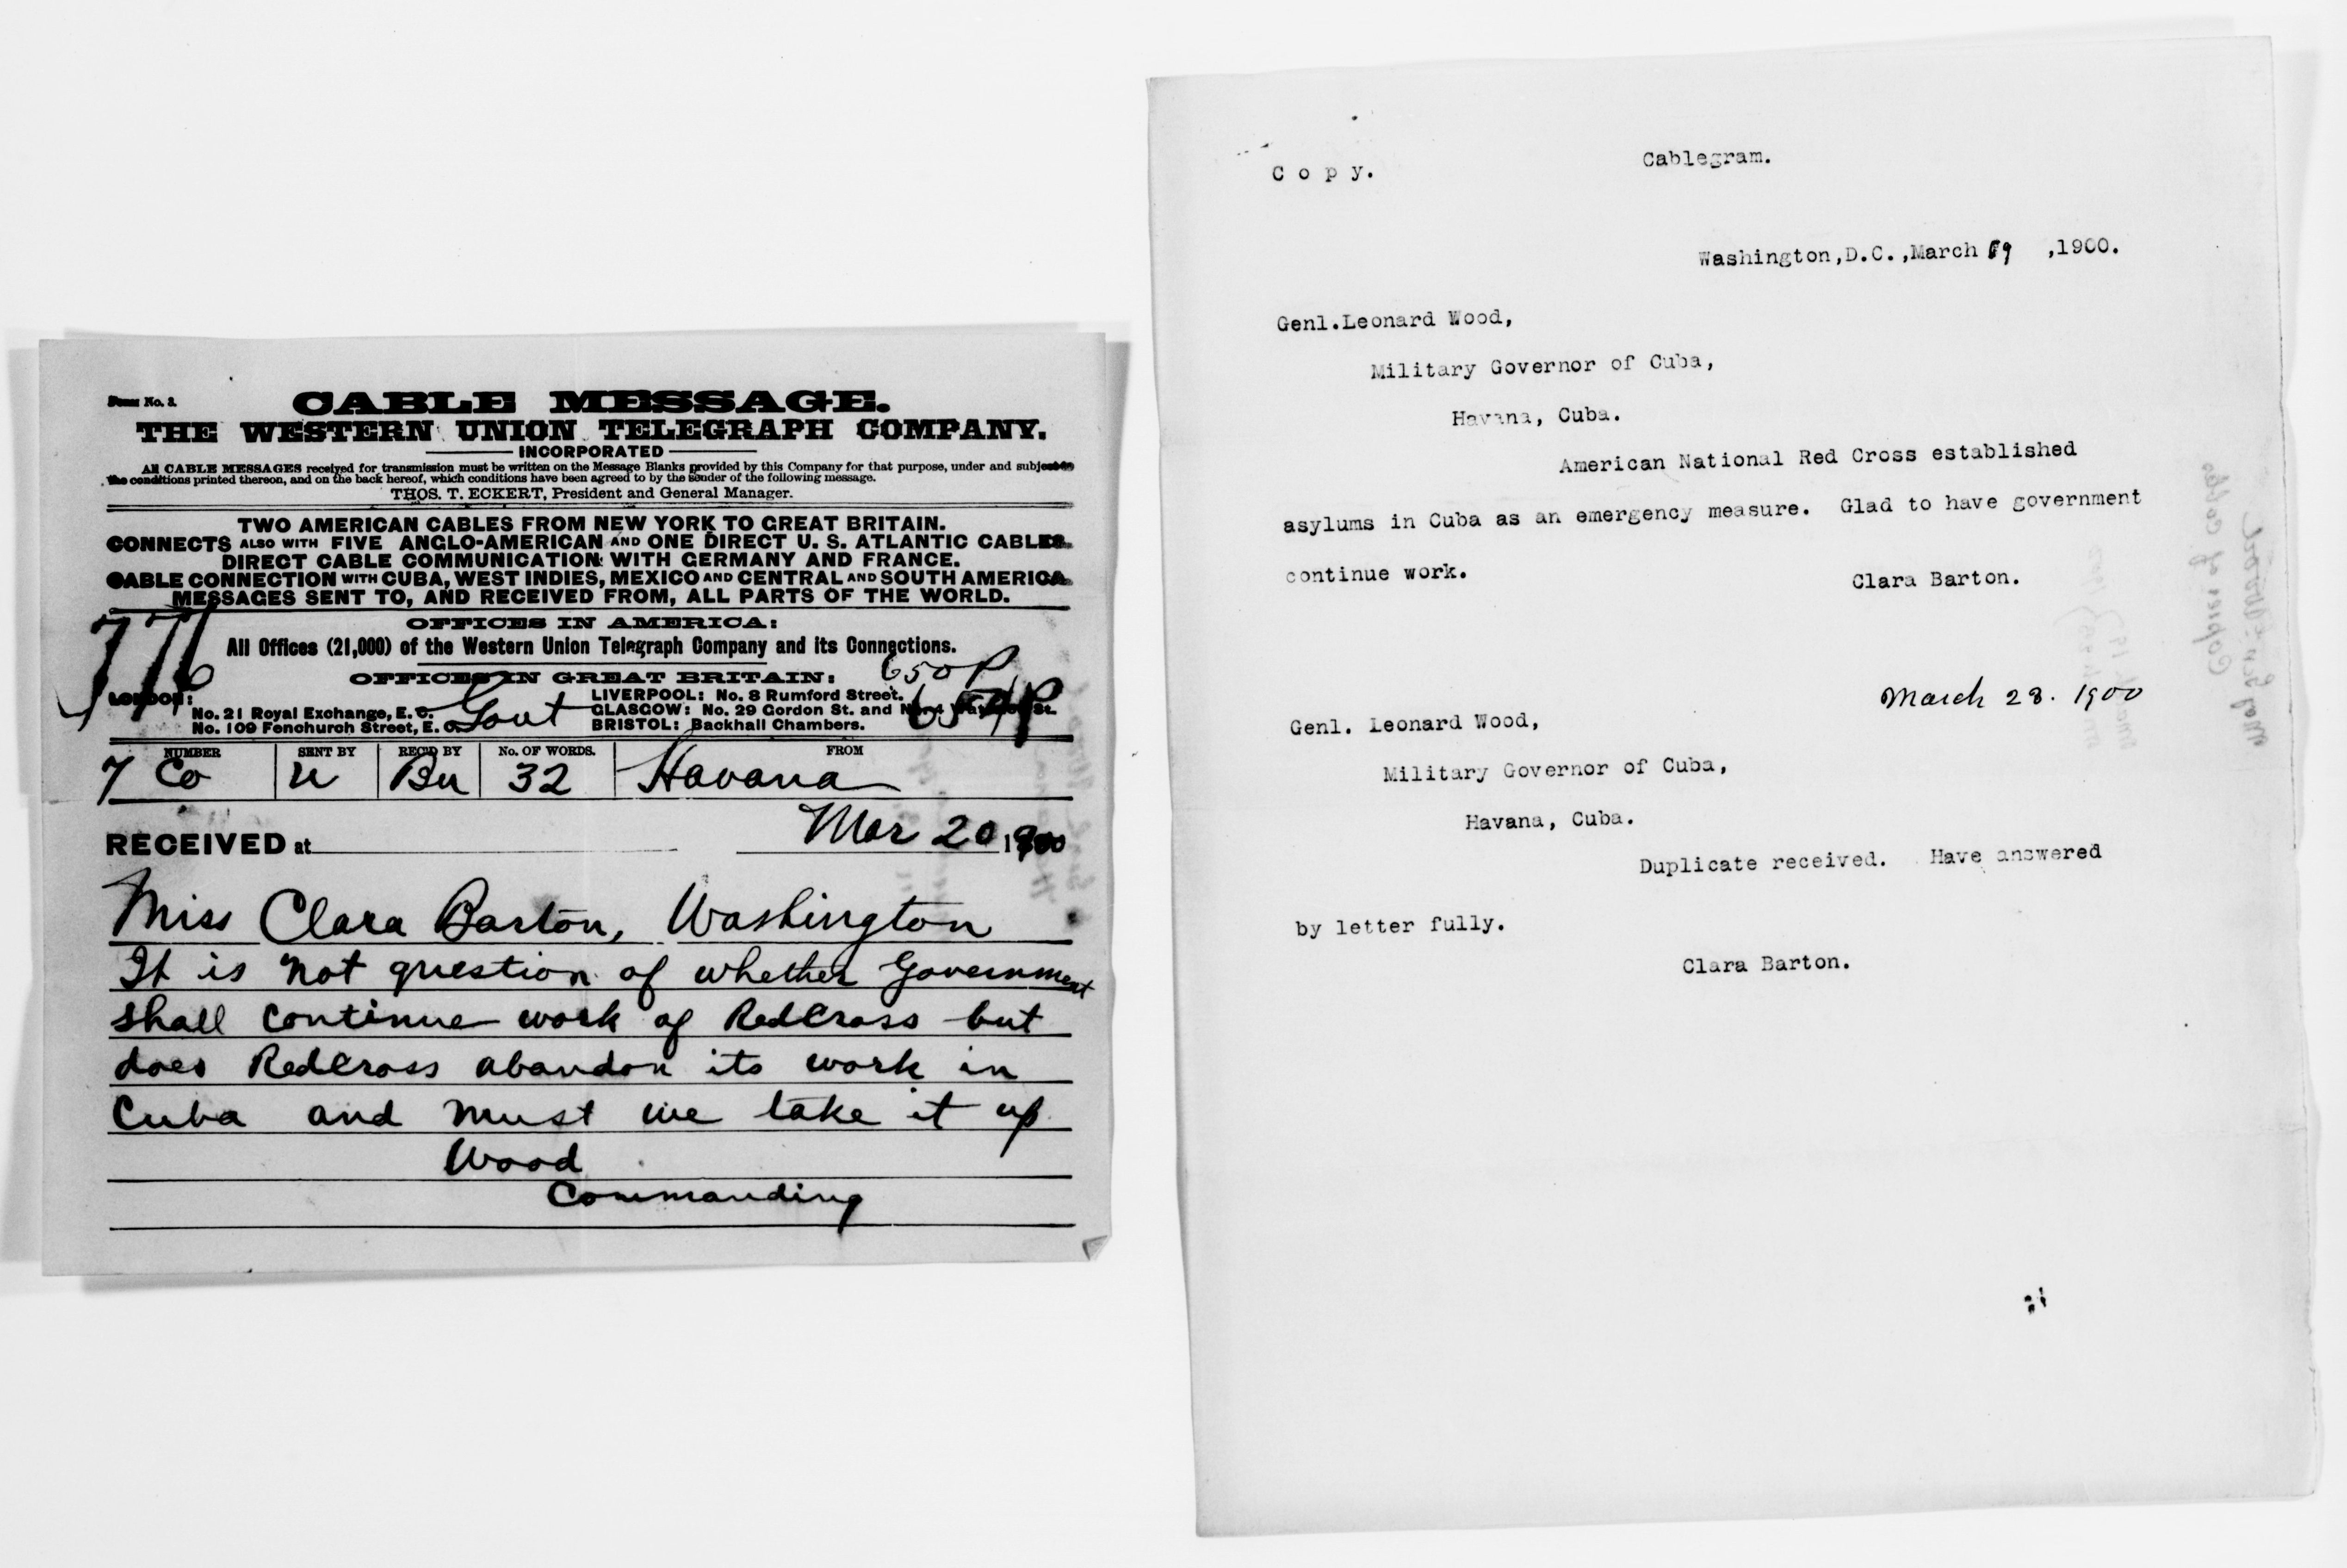 Form No. 2.
CABLE MESSAGE.
THE WESTERN UNION TELEGRAPH COMPANY.
INCORPORATED
All CABLE MESSAGES received for transmission must be written on the Message Blanks provided by this Company for that purpose, under and subject to
the conditions printed thereon, and on the back hereof, which conditions have been agreed to by the sender of the following message.
THOS. T. ECKERT, President and General Manager.
TWO AMERICAN CABLES FROM NEW YORK TO GREAT BRITAIN.
CONNECTS ALSO WITH FIVE ANGLO-AMERICAN AND ONE DIRECT U. S. ATLANTIC CABLES.
DIRECT CABLE COMMUNICATION WITH GERMANY AND FRANCE.
CABLE CONNECTION WITH CUBA, WEST INDIES, MEXICO AND CENTRAL AND SOUTH AMERICA.
MESSAGES SENT TO, AND RECEIVED FROM, ALL PARTS OF THE WORLD.
OFFICES IN AMERICA:
All Offices (21,000) of the Western Union Telegraph Company and its Connections.
650P
OFFICES IN GREAT BRITAIN:
LONDON:
No. 21 Royal Exchange, E. C.
No. 109 Fenchurch Street, E. C.
Govt
LIVERPOOL: No. 8 Rumford Street.
GLASGOW: No. 29 Gordon St. and No. 4 St.
BRISTOL: Backhall Chambers.
654P
NUMBER SENT BY REC'D BY No. OF WORDS. FROM
7 Co U Bu 32 Havana
RECEIVED at Mar 20 1900
Miss Clara Barton, Washington
It is not question of whether Government
shall continue work of RedCross but
does RedCross abandon its work in
Cuba and must we take it up
Wood
Commanding
Copy.
Cablegram.
Washington,D.C.,March 19 ,1900.
Genl.Leonard Wood,
Military Governor of Cuba,
Havana, Cuba.
American National Red Cross established
asylums in Cuba as an emergency measure. Glad to have government
continue work.
Clara Barton.
March 28. 1900
Genl. Leonard Wood,
Military Governor of Cuba,
Havana, Cuba.
Duplicate received. Have answered
by letter fully.
Clara Barton.